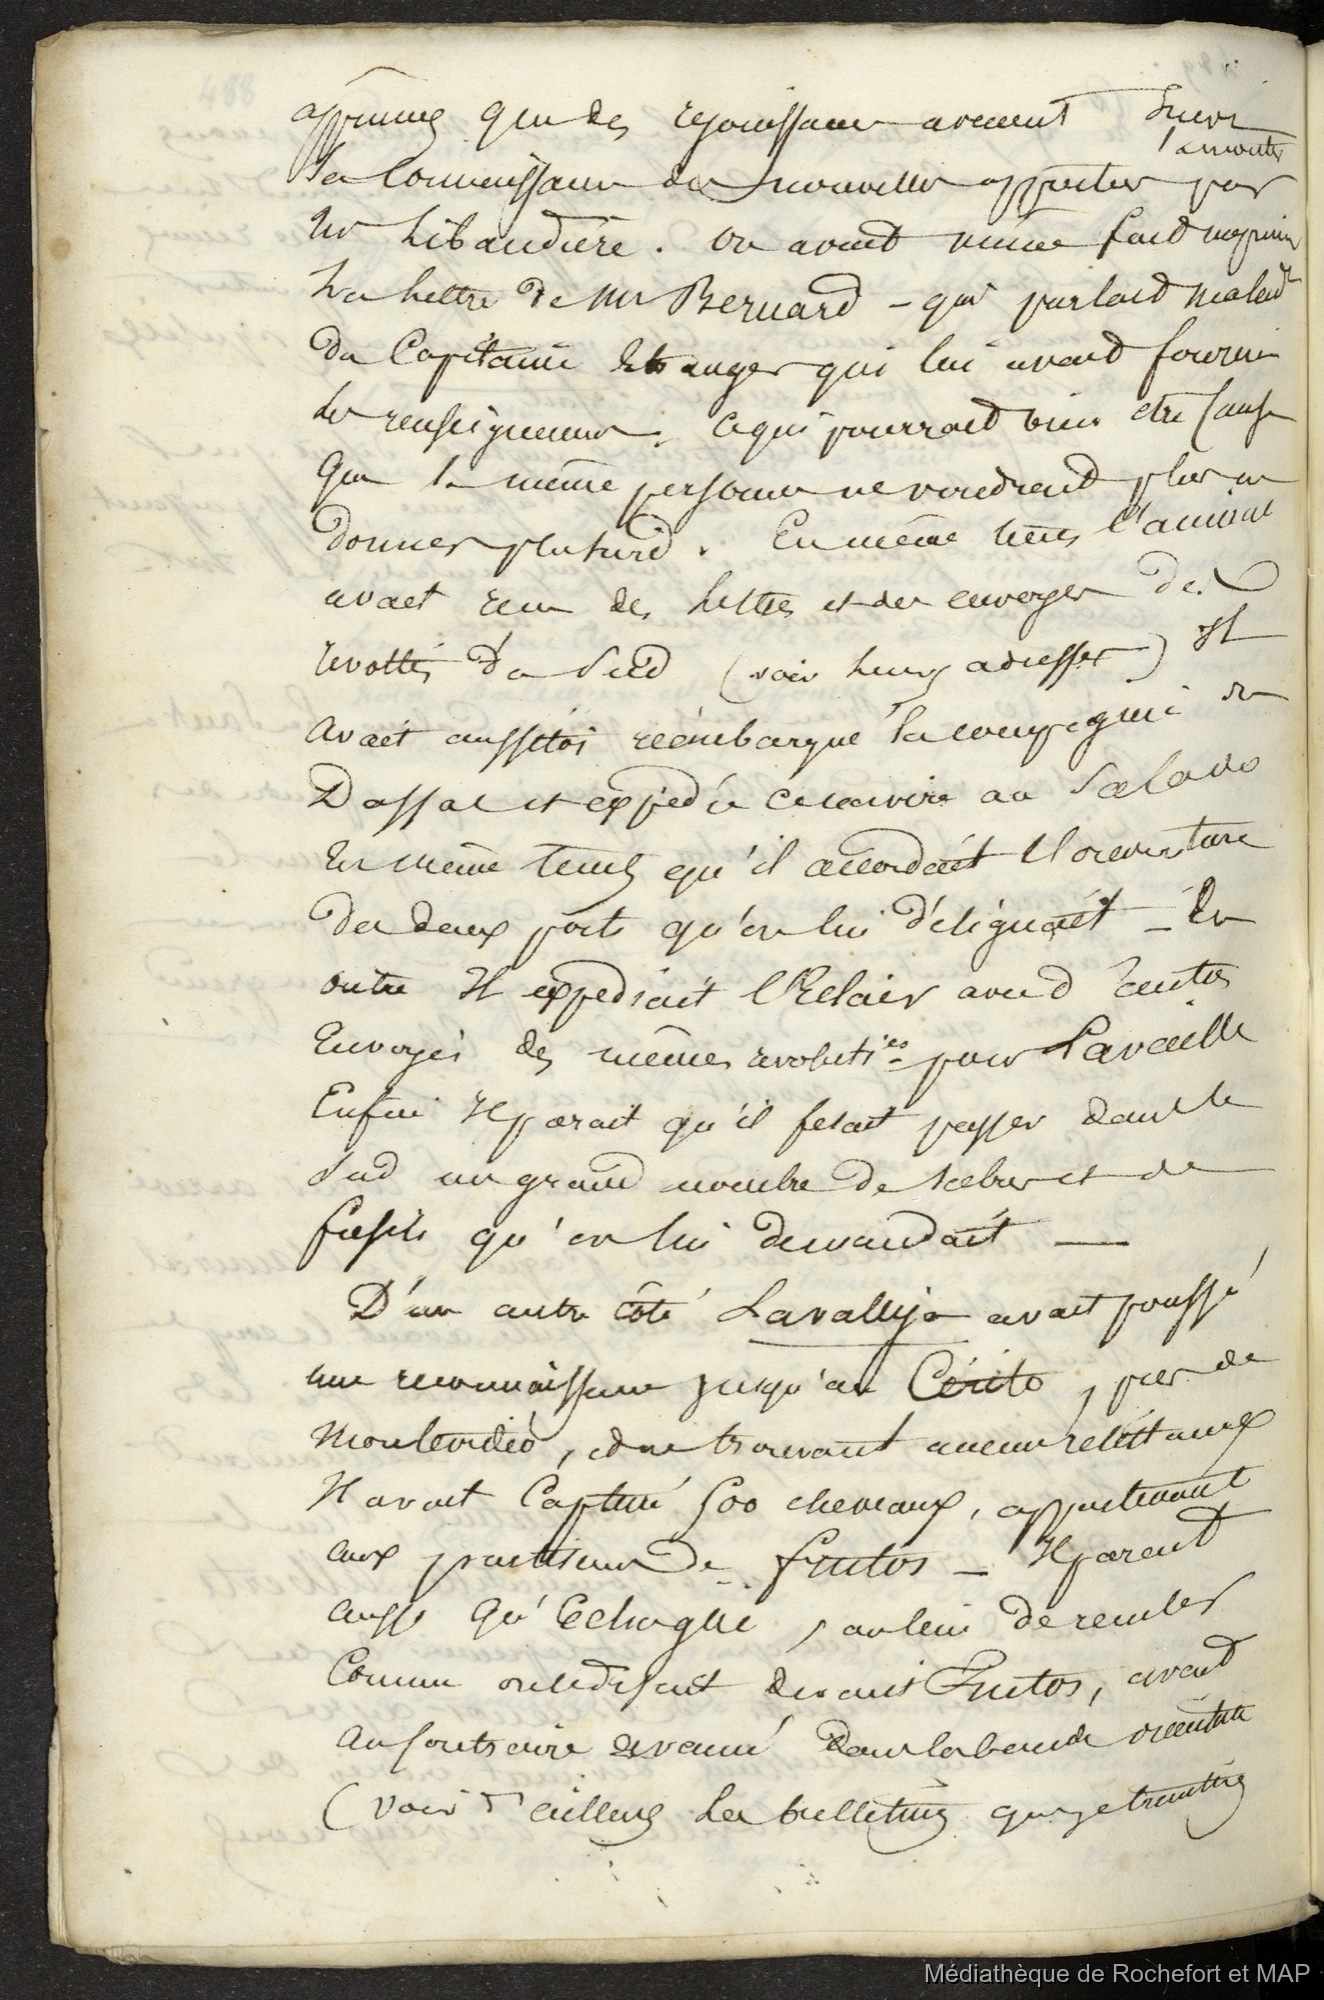 488
apprimes que des rejouissances avaient suivi
la connaissance des nouvelles apportées par
Mr Libaudière. on avait même fait imprimer
la lettre de Mr Bernard - qui parlait
du Capitaine Etranger qui lui avait fourni
les renseignemens. ce qui pourrait bien etre cause
que la même personne ne voudrait plus en
donner plutard. En même tems l'amiral
avait reçu des lettres et des envoyés des
revoltés du Sud (voir leurs adresses) Il
avait aussitôt réémbarqué la compagnie du
Dassas et expédié ce navire au Salado
En même tems qu'il accordait l'ouverture
des deux ports qu'on lui désignait - En
outre Il expediait l'Eclair avec d'autres
Envoyés des mêmes revoltés pour Lavalle
Enfin Il parait qu'il fesait passer dans le
Sud un grand nombre de sabres et de
fusils qu'on lui demandait —
D'un autre côté Lavalleja avait poussé
une reconnaissance jusqu'au Cérito, près de
Montevideo, et ne trouvant aucun
Il avait Capturé 500 chevaux, appartenant
aux partisans de fructos - Il parait
aussi qu'Echague, au lieu de reculer
Comme on le disait devant Frutos, avait
au contraire avancé dans la bande orientale
(voir d'ailleurs les bulletins que je transmets
Médiathèque de Rochefort et MAP